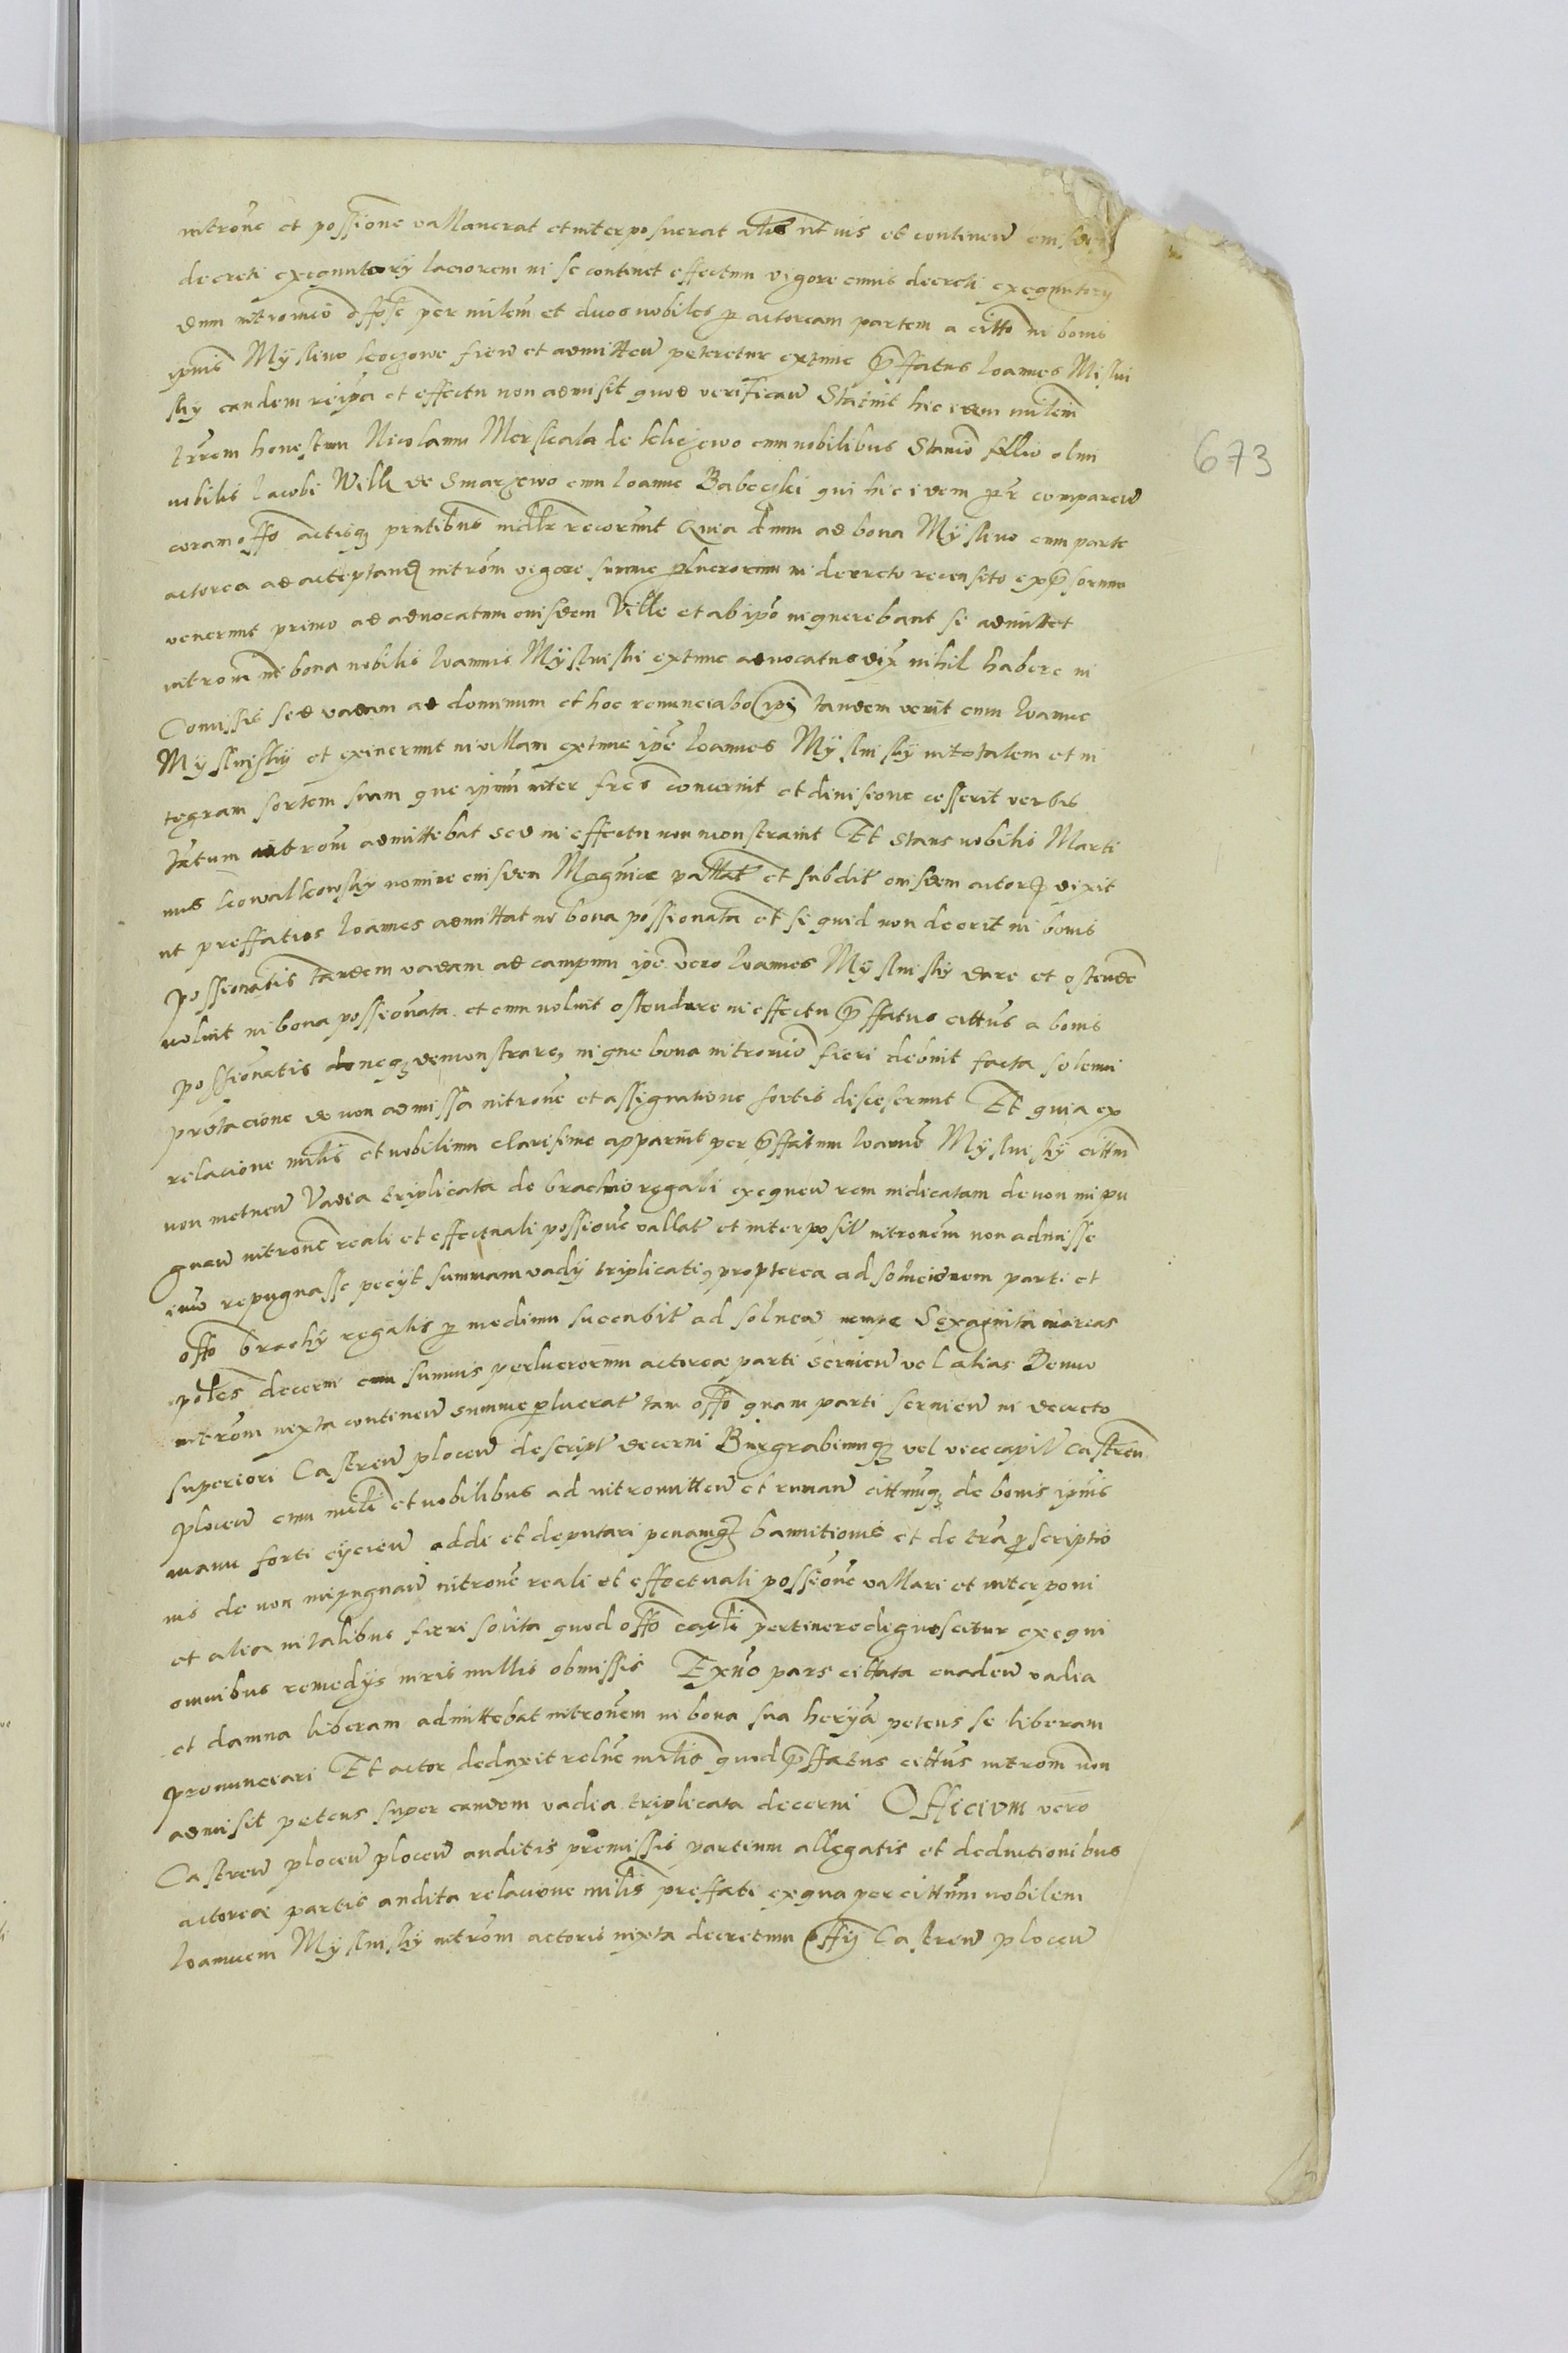 introne et possione vallaverat et interposuerat aliis ut iuis et continen eiusdem
decreti exequutorÿ laciorem in se continet effectum vigore cuius decreti exequutorÿ
dum intromio per miltem et duos nobiles p actoream partem a citto in bonis
ipius Mÿslino koczowe fien et admitten peteretur extunc pffatus Ioannes Mislin
skÿ eandem reipa et effectu non admisit quod verifican Statuit hic idem miltem
trrem honestum Nicolaum Mersicala de seliczewo cum nobilibus Stanio fillio olim
nobilis Iacobi Wilk de Smarzewo cum Ioanne Babeczki qui hic idem pr comparen
coram offo actisq pntibus recorunt Quia dum ad bona Mÿslino cum parte
actorea ad acceptand introm vigore summe plucrorum in decreto recensito expssorum
venerunt primo ad advocatum eiusdem Ville et ab ipo inquerebant si admittet
introm in bona nobilis Ioannis Mÿslinski extunc advocatus dix nihil habere in
Comissis sed vadam ad dominum et hoc renunciabo ipi tandem venit cum Ioanne
Mÿslinskÿ et exiuerunt in villam extunc ipe Ioannes Mÿslinskÿ in totalem et in
tegram sortem suam que ipium inter fres concernit et divisione cesserit verbis
tatum introm admittebat sed in effectu non monstravit Et stans nobilis Marti
nus kowalkowskÿ nomine eiusdem Magnice pallat et subdit eiusdem actor dixit
ut preffatus Ioannes admittat in bona possionata et si quid non deerit in bonis
possionatis tandem vadam ad campum ipe vero Ioannes Mÿslinskÿ dare et ostende
voluit in bona possionata et cum noluit ostendere in effectu pffatus cittus a bonis
possionatis neq demonstrare inque bona intromio fieri debuit facta solemni
prtacione de non admissa introne et assignatione sortis discesserunt Et quia ex
relacione miltis et nobilium clarisime apparuit per pffatum Ioanne Mÿslinskÿ cittm
non metuen Vadia triplicata de brachio regali exequen rem iudicatam de non impu
gnan introne reali et effectuali possione vallat et interposit intronem non admisse
imo repugnasse peciit summam vadÿ triplicati propterea ad solucionem parti et
offo brachÿ regalis p medium sucenbit ad soluen nempe Sexaginta marcas
poles decerni cum summis perlucrorum actoreæ parti servien vel alias Denuo
introm iuxta continen summe plucrat tam offo quam parti servien in decreto
superiori Castren plocen descript decerni Burgrabiumq vel vicecapit Castren
plocen cum milti et nobilibus ad intromitten et ruman cittmq de bonis ipius
manu forti eÿcien addi et deputari penamq bannitionis et de tra pscriptio
nis de non impugnan introne reali et effectuali possione vallari et interponi
et alia in talibus fieri solita quod offo capli pertinere dignoscitur exequi
omnibus remedÿs iuris nullis obmissis Exuo pars cittata evaden vadia
et damna liberam admittebat intronem in bona sua herÿa petens se liberam
pronunciari Et actor deduxit relne miltis quod pffatus cittus introm non
admisit petens super eandem vadia triplicata decerni Officium vero
Castren plocen plocen auditis premissis partium allegatis et deductionibus
actoreæ partis audita relacione miltis preffati exqua per cittum nobilem
Ioannem Mÿslinskÿ introm actoris iuxta decretum offÿ Castren plocen
673